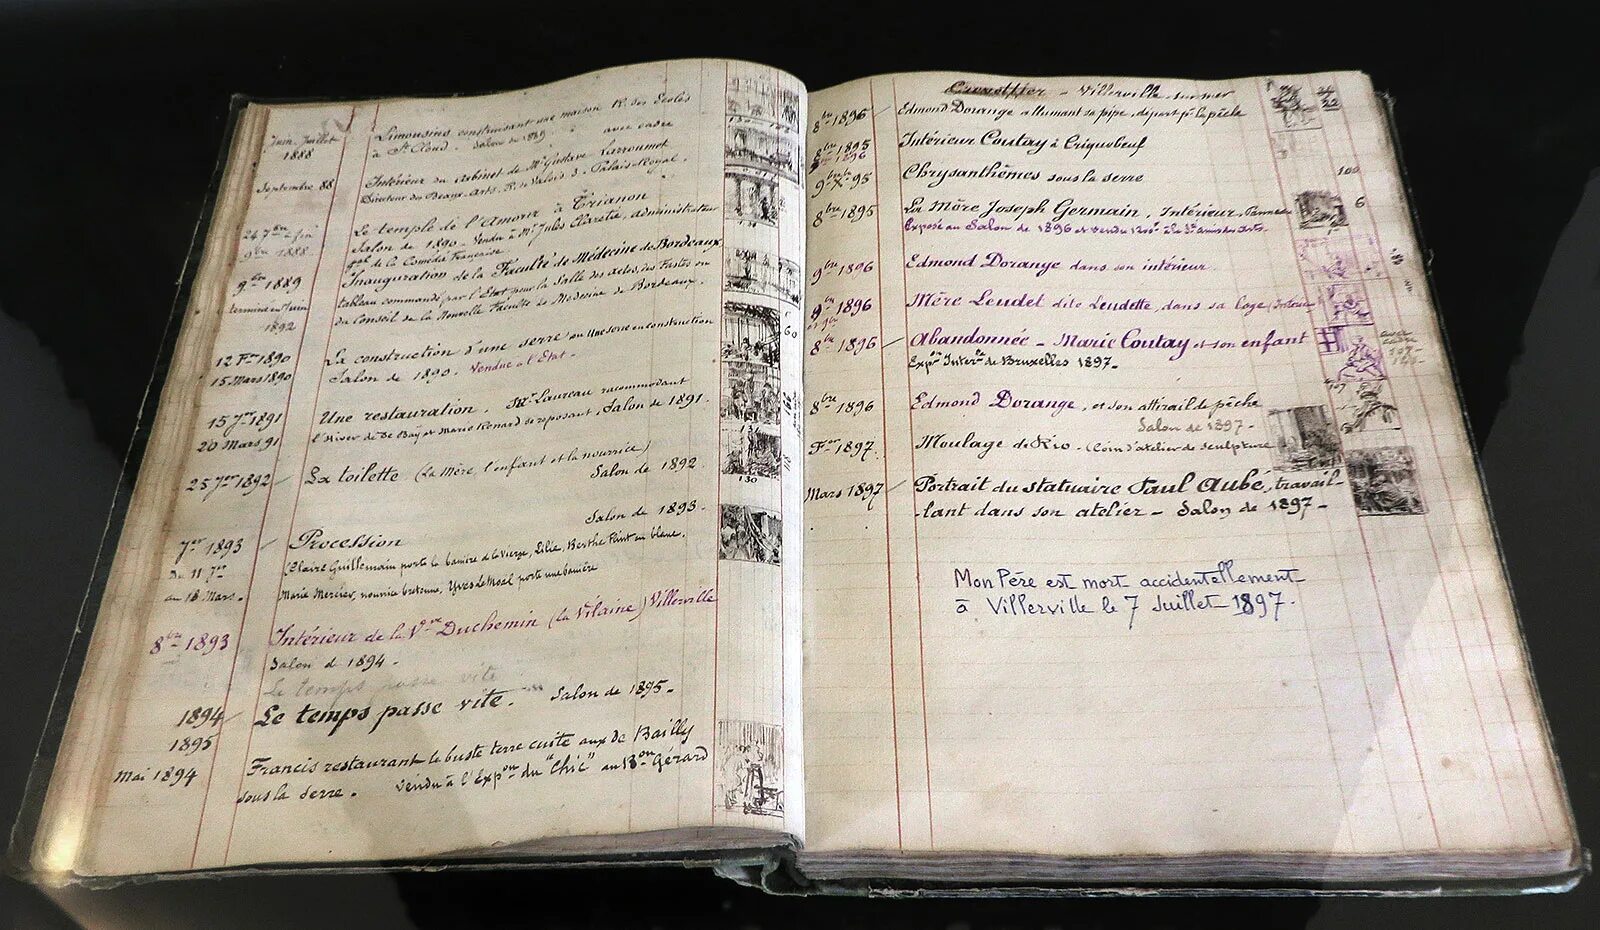 Juin Juillet
1888
Limousins construisant une maison R. des Ecoles
à St Cloud. Salon de 1889 avec cadre
Septembre 88
Intérieur du Cabinet de Mr Gustave Larroumet
Directeur des Beaux-Arts. R. de Valois 3 - Palais-Royal.
9bre 1888
Le temple de l'Amour à Trianon
Salon de 1890. Vendu à Mr Jules Claretie, administrateur
gal de la Comédie Française
9bre 1889
terminé en Juin
1892
Inauguration de la Faculté de Médecine de Bordeaux
tableau commandé par l'Etat pour la Salle des actes, des Fastes ou
du Conseil de la Nouvelle Faculté de Médecine de Bordeaux.
12 Fer 1890
15 Mars 1890
La construction d'une serre ou Une serre en construction
Salon de 1890. Vendue à l'Etat.
15 Jer 1891
20 Mars 91
Une restauration. Mr Laureau racommodant
l'Hiver de De Bay et Marie Renard se reposant, Salon de 1891.
25 Jer 1892
La toilette (La Mère, l'enfant et la nourrice)
Salon de 1892
Salon de 1893.
7er 1893
Du 11 7er
au 18 Mars.
Procession
(Claire Guillemain porte la banière de la Vierge, Lilie, Berthe en blanc.
Marie Mercier, nounice bretonne, Yves de porte une banière
8bre 1893
Intérieur de la Vve Duchemin (la Vilaine) Villerville
Salon d 1894.
Le temps passe vite
1894
1895
Le temps passe vite. Salon de 1895.
Mai 1894
Francis restaurant le buste terre cuite aux de Bailly
sous la serre. Vendu à l'Expon du "Chic" au Bon Gérard
130
131
130
60
Villerville sur mer
8bre 1896
Edmond Dorange allumant sa pipe, départ pr la pêche
8bre 1895
1896
Intérieur Coutay à Criquebeuf
95
Chrysanthèmes sous la serre
100
8bre 1895
La Mère Joseph Germain, Intérieur, Panneau
6
Exposé au Salon de 1896 et vendu des Arts.
9bre 1896
Edmond Dorange dans son intérieur
9bre 1896
Mère Leudet dite Leudette, dans sa loge
8bre 1896
Abandonnée - Marie Coutay et son enfant
Expon Interle de Bruxelles 1897.
8bre 1896
Edmond Dorange, et son attirail de pêche
Salon de 1897.
Fer 1897
Moulage de Rio - (Coin d'atelier de sculpture
Mars 1897
Portrait du statuaire Paul Aubé, travail-
-lant dans son atelier - Salon de 1897.
Mon Père est mort accidentellement
à Villerville le 7 Juillet 1897.